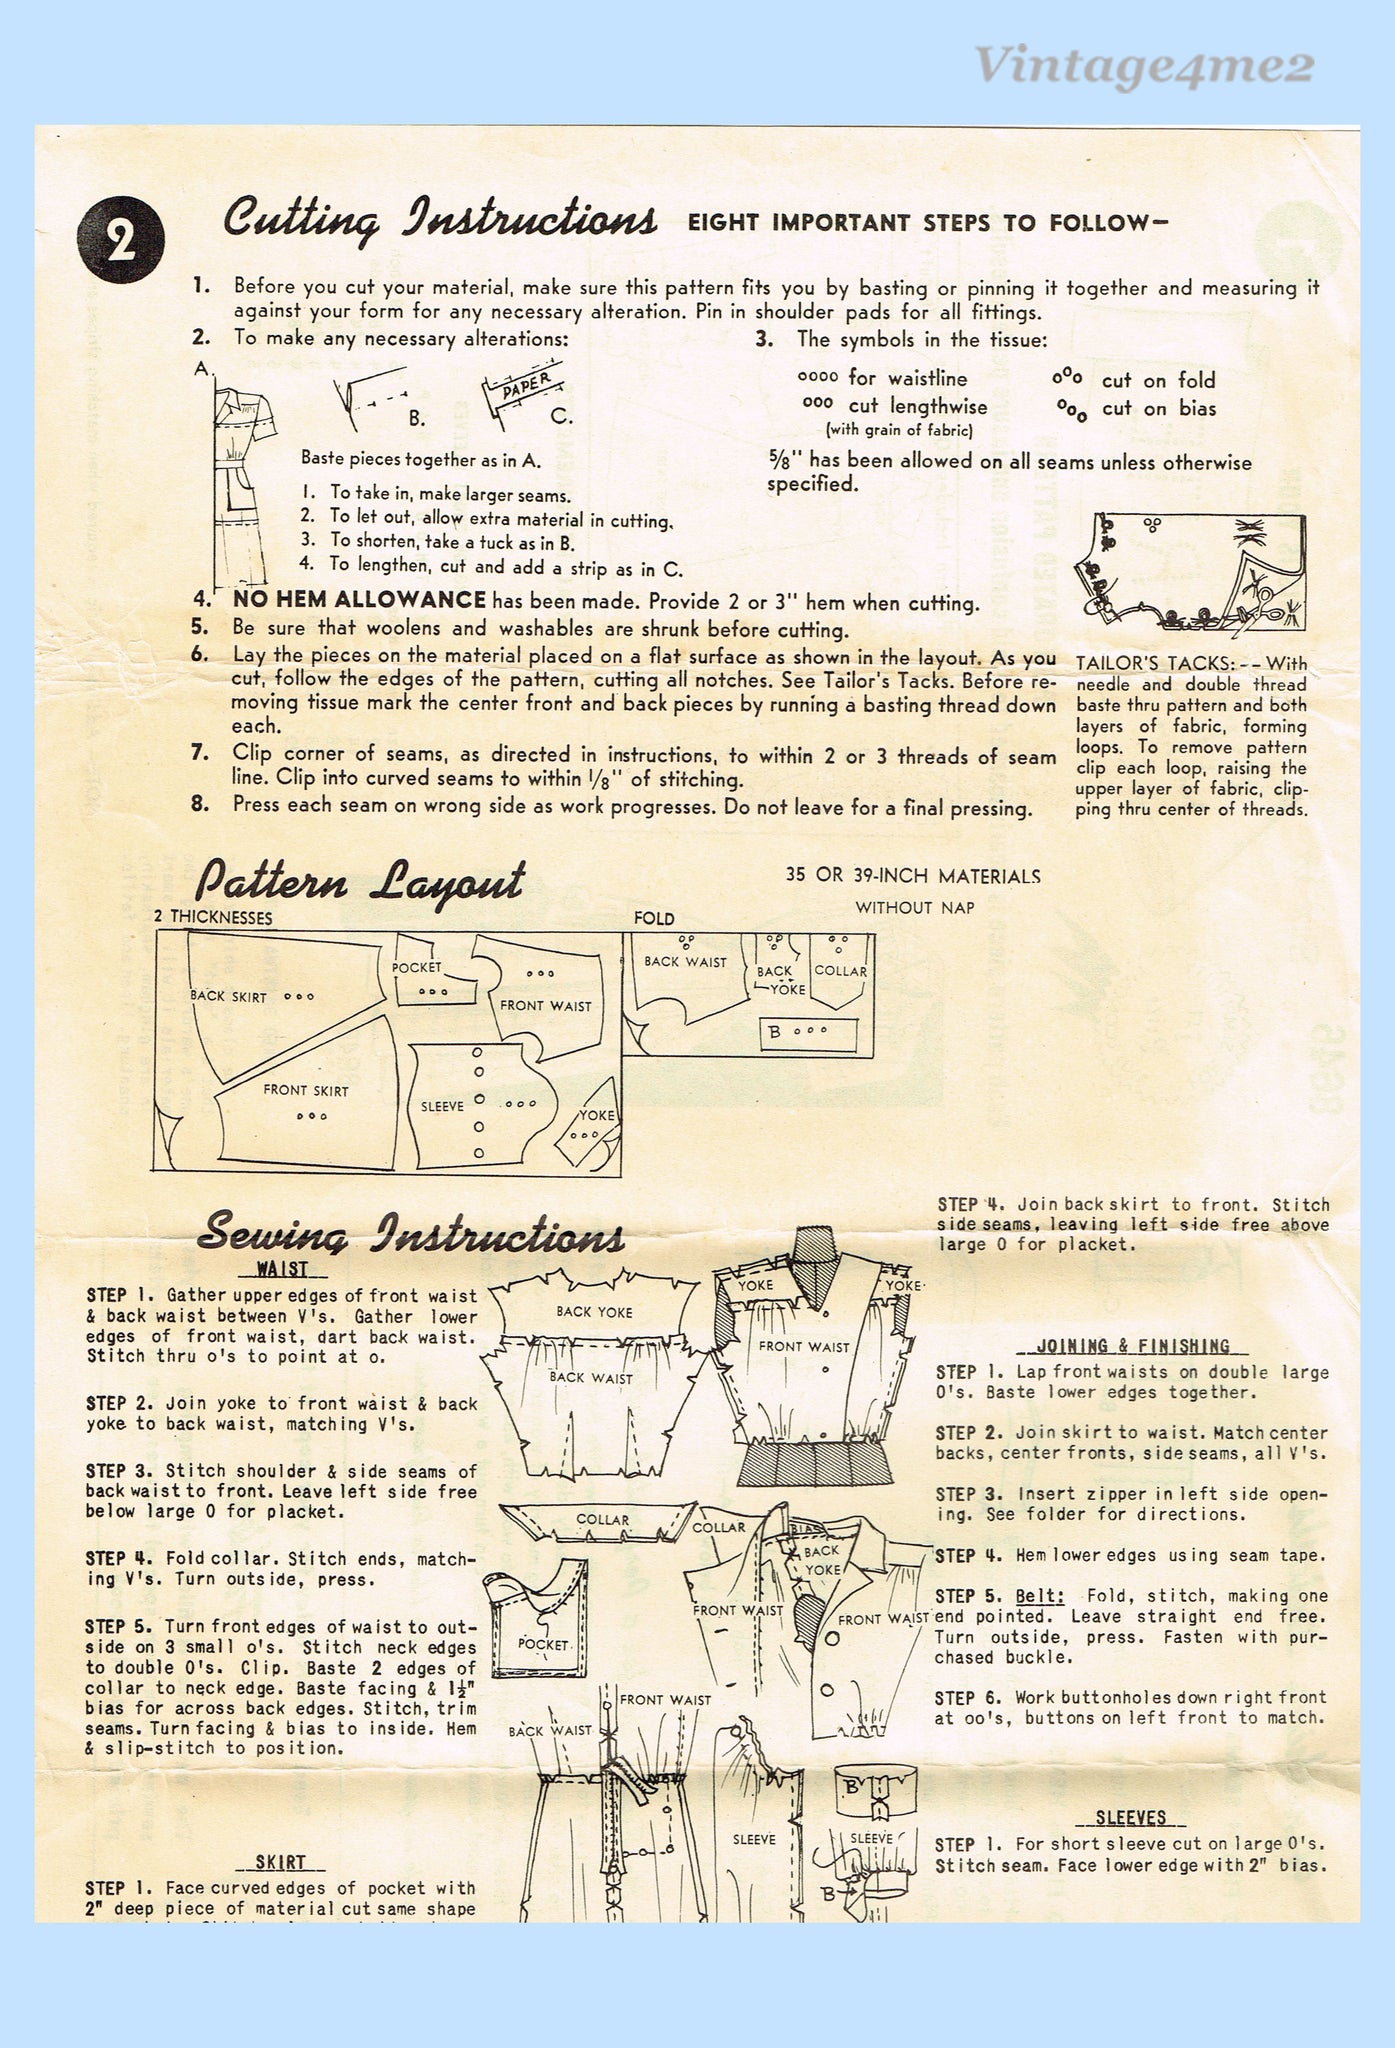 Vintage4me2
2
Cutting Instructions EIGHT IMPORTANT STEPS TO FOLLOW—
1. Before you cut your material, make sure this pattern fits you by basting or pinning it together and measuring it
against your form for any necessary alteration. Pin in shoulder pads for all fittings.
2. To make any necessary alterations:
A.
B.
PAPER
C.
Baste pieces together as in A.
1. To take in, make larger seams.
2. To let out, allow extra material in cutting.
3. To shorten, take a tuck as in B.
4. To lengthen, cut and add a strip as in C.
3. The symbols in the tissue:
oooo for waistline
ooo cut on fold
ooo cut lengthwise
(with grain of fabric)
ooo cut on bias
5/8" has been allowed on all seams unless otherwise
specified.
4. NO HEM ALLOWANCE has been made. Provide 2 or 3" hem when cutting.
5. Be sure that woolens and washables are shrunk before cutting.
6. Lay the pieces on the material placed on a flat surface as shown in the layout. As you
cut, follow the edges of the pattern, cutting all notches. See Tailor's Tacks. Before re-
moving tissue mark the center front and back pieces by running a basting thread down
each.
7. Clip corner of seams, as directed in instructions, to within 2 or 3 threads of seam
line. Clip into curved seams to within 1/8" of stitching.
8. Press each seam on wrong side as work progresses. Do not leave for a final pressing.
TAILOR'S TACKS:--With
needle and double thread
baste thru pattern and both
layers of fabric, forming
loops. To remove pattern
clip each loop, raising the
upper layer of fabric, clip-
ping thru center of threads.
Pattern Layout
35 OR 39-INCH MATERIALS
WITHOUT NAP
2 THICKNESSES
FOLD
BACK SKIRT
POCKET
FRONT WAIST
FRONT SKIRT
SLEEVE
YOKE
BACK WAIST
BACK
YOKE
COLLAR
B
Sewing Instructions
WAIST
STEP 1. Gather upper edges of front waist
& back waist between V's. Gather lower
edges of front waist, dart back waist.
Stitch thru o's to point at o.
STEP 2. Join yoke to front waist & back
yoke to back waist, matching V's.
STEP 3. Stitch shoulder & side seams of
back waist to front. Leave left side free
below large O for placket.
STEP 4. Fold collar. Stitch ends, match-
ing V's. Turn outside, press.
STEP 5. Turn front edges of waist to out-
side on 3 small o's. Stitch neck edges
to double O's. Clip. Baste 2 edges of
collar to neck edge. Baste facing & 1½"
bias for across back edges. Stitch, trim
seams. Turn facing & bias to inside. Hem
& slip-stitch to position.
SKIRT
STEP 1. Face curved edges of pocket with
2" deep piece of material cut same shape
BACK YOKE
BACK WAIST
YOKE
YOKE
FRONT WAIST
COLLAR
COLLAR
BIAS
BACK
YOKE
FRONT WAIST
FRONT WAIST
POCKET
FRONT WAIST
BACK WAIST
SLEEVE
B
SLEEVE
B
STEP 4. Join back skirt to front. Stitch
side seams, leaving left side free above
large O for placket.
JOINING & FINISHING
STEP 1. Lap front waists on double large
O's. Baste lower edges together.
STEP 2. Join skirt to waist. Match center
backs, center fronts, side seams, all V's.
STEP 3. Insert zipper in left side open-
ing. See folder for directions.
STEP 4. Hem lower edges using seam tape.
STEP 5. Belt: Fold, stitch, making one
end pointed. Leave straight end free.
Turn outside, press. Fasten with pur-
chased buckle.
STEP 6. Work buttonholes down right front
at oo's, buttons on left front to match.
SLEEVES
STEP 1. For short sleeve cut on large O's.
Stitch seam. Face lower edge with 2" bias.